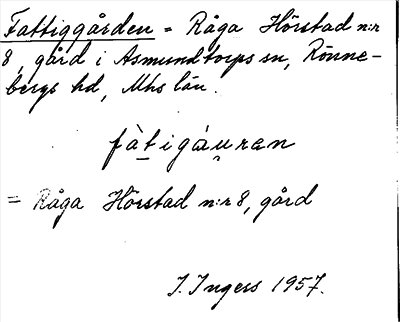 Fattiggården = Råga Hörstad n:r
8, gård i Asmundtorps sn, Rönne-
bergs hd, Mhs län.
fàtigáu̯ran
= Råga Hörstad n:r 8, gård
I. Ingers 1957.